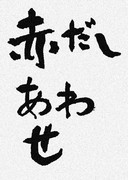 赤だし
あわ
せ